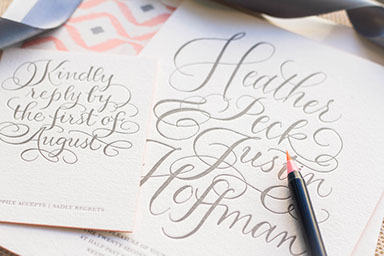 Kindly
reply by
the first of
August
PPILY ACCEPTS / SADLY REGRETS
Heather
Peck
Justin
Hoffman